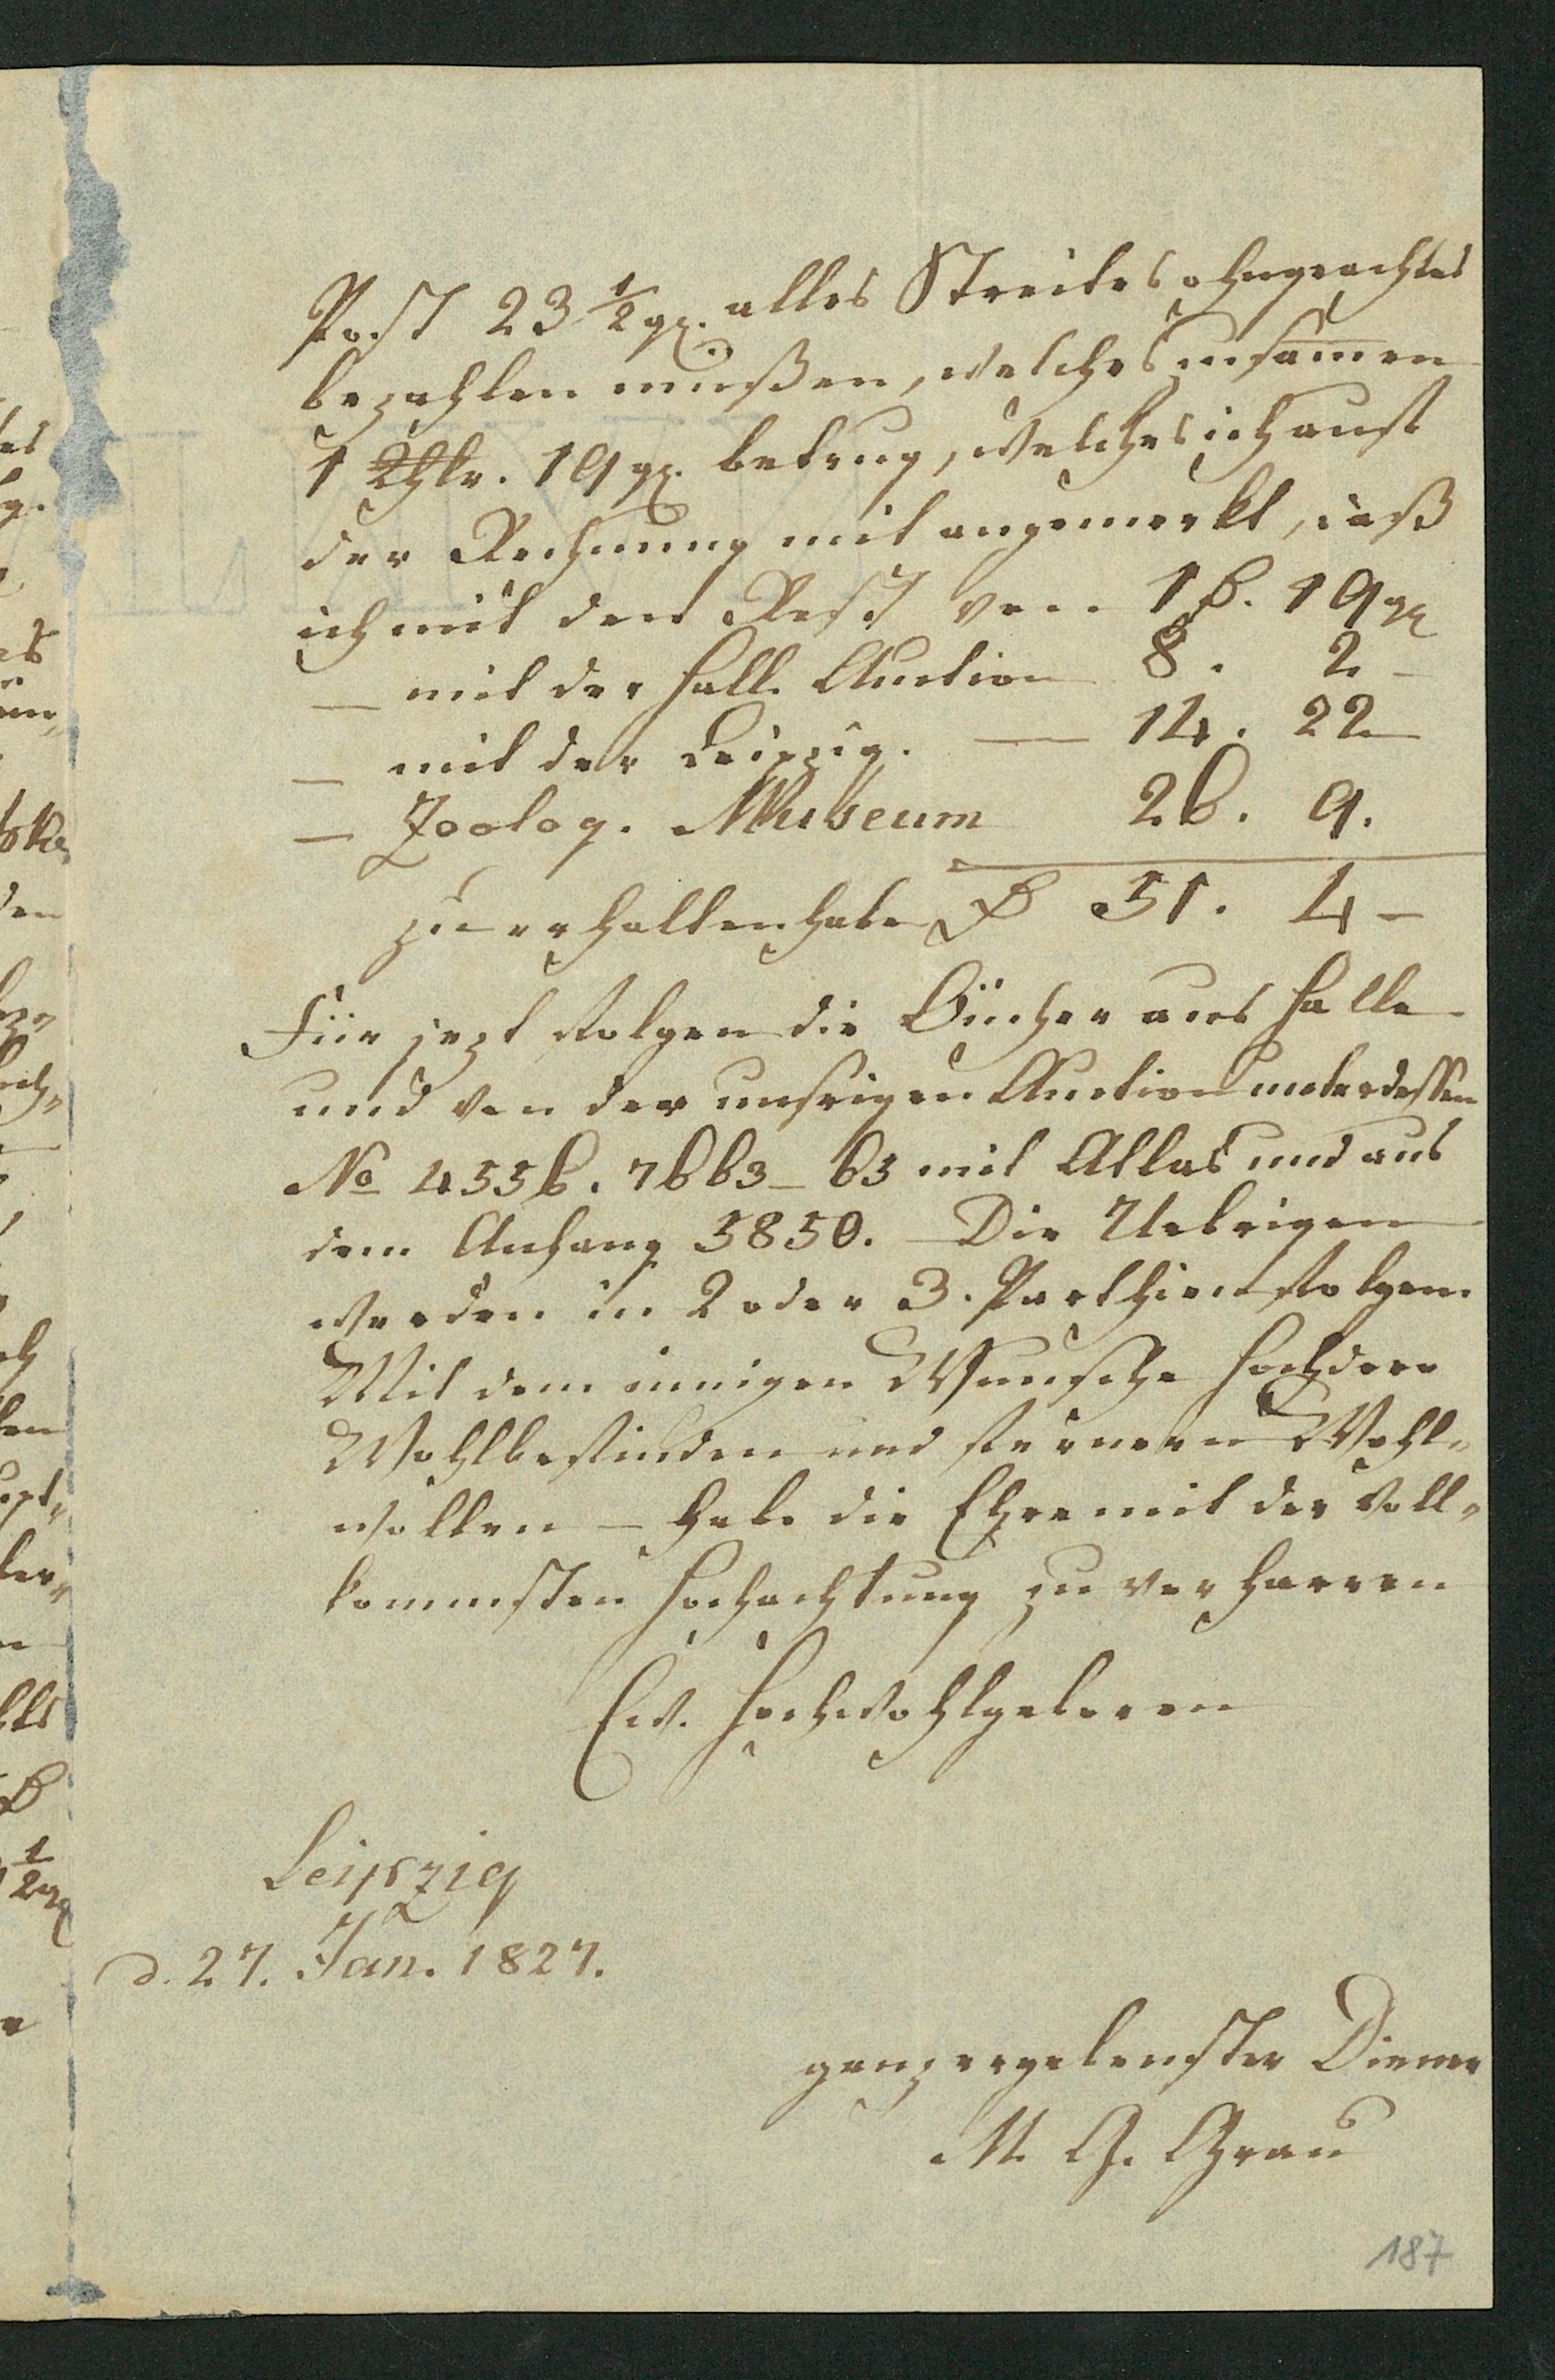 Post 23 1/2 gr. alles Streites ohngeachtet
bezahlen müßen, welches zusam̅en
1 Thlr. 19 gr. betrug, welches ich auf
der Rechnung mit angemerkt, daß
ich mit den Rest von 1 ₰. 19 gr
— mit der Hall. Auction 8. 2 –
— mit der Leipzig. — 14. 22 –
— Zoolog. Museum 26. 9.
zu erhalten habe ₰ 51. 4 –
Für jezt folgen die Bücher aus Halle
und von der unsrigen Auction unterdessen
No 4556. 7663–65 mit Atlas und aus
dem Anhang 5850. – Die Uebrigen
werden in 2 oder 3. Parthien folgen.
Mit dem innigen Wunsche Hochdero
Wohlbefinden und fernern Wohl-
wollen – habe die Ehre mit der voll-
kommsten Hochachtung zu verharren
Ew. Hochwohlgeboren
Leipzig
d. 27. Jan. 1827.
ganz ergebenster Diener
M. G. Grau
187